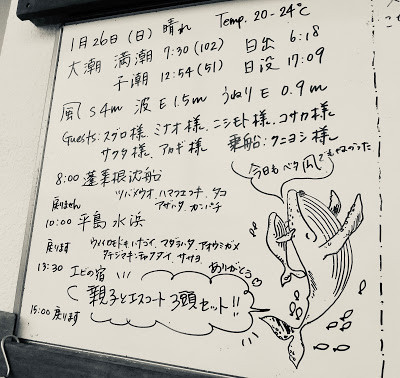 1月26日(日) 晴れ Temp. 20-24℃
大潮 満潮 7:30 (102) 日出 6:18
干潮 12:54 (51) 日没 17:09
風 S4m 波 E 1.5m うねり E 0.9m
Guests: スグロ様、ミナオ様、ニシモト様、コサカ様、
サクタ様、アカギ様、 乗船:クニヨシ様
今日もベタ凪でもねがった
8:00 蓬莱根沈船
ツバメウオ、ハマフエフキ、タコ
アザハタ、カンパチ
戻りません
10:00 平島 水浜
戻ります
マダラハタ、アオウミガメ
13:30 エビの宿
ありがとう
親子とエスコート 3頭セット!!
15:00 戻ります